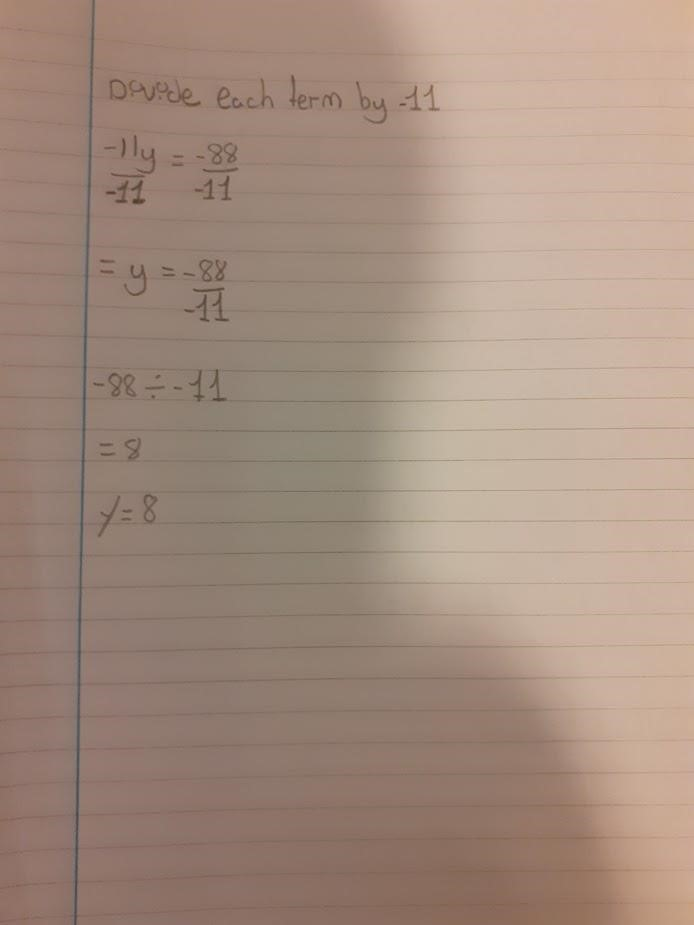 Devide each term by -11
-11y/-11 = -88/-11
= y = -88/-11
-88 ÷ -11
= 8
y = 8